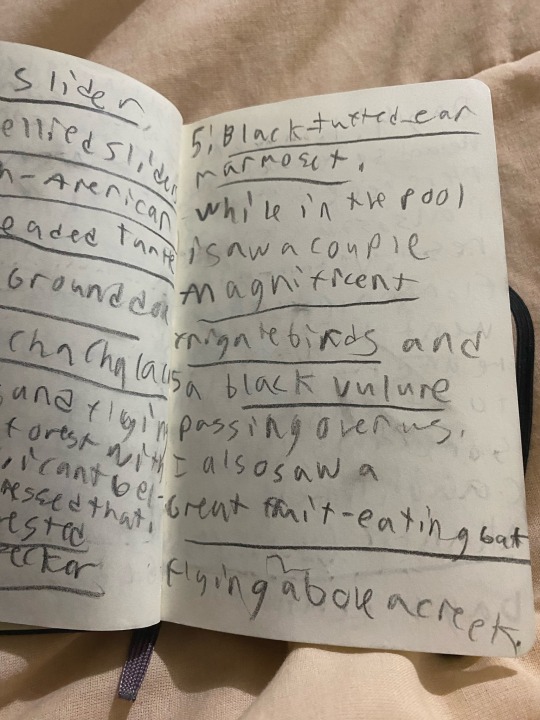 slider,
ellied slider
h-American
eaded turtle
Ground do
chachalac
s and flyin
forest with
, i cant bel-
ressed that,
rested
ecker
5; Black-tufted-ear
marmoset.
while in the pool
i saw a couple
magnificent
birds and
a black vulure
passing over us.
I also saw a
Great fruit-eating bat
flying above a creek.